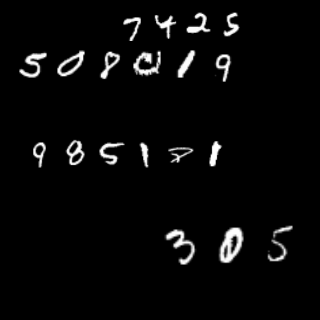 7425
508019
985181
305